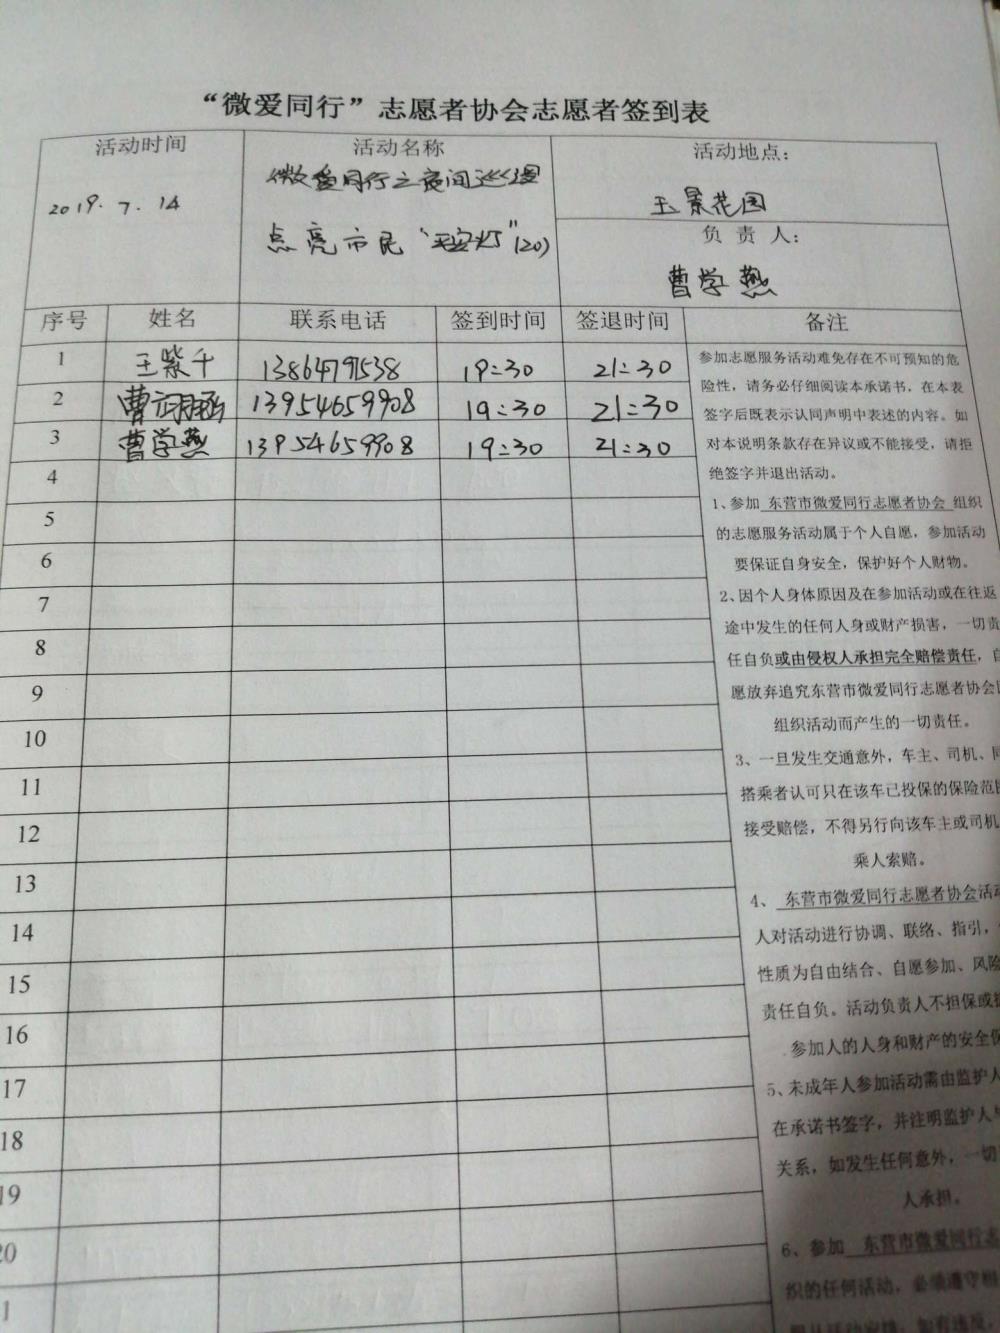 “微爱同行”志愿者协会志愿者签到表
活动时间
2019.7.14
活动名称
微爱同行之夜间巡逻
点亮市民“平安灯”(20)
活动地点：
玉景花园
负责人：
曹学燕
序号 姓名 联系电话 签到时间 签退时间 备注
1 王紫千 13864791538 19:30 21:30
2 曹 13954659908 19:30 21:30
3 曹学燕 13954659908 19:30 21:30
4
5
6
7
8
9
10
11
12
13
14
15
16
17
18
19
20
1
参加志愿服务活动难免存在不可预知的危
险性，请务必仔细阅读本承诺书，在本表
签字后既表示认同声明中表述的内容。如
对本说明条款存在异议或不能接受，请拒
绝签字并退出活动。
1、参加 东营市微爱同行志愿者协会 组织
的志愿服务活动属于个人自愿，参加活动
要保证自身安全，保护好个人财物。
2、因个人身体原因及在参加活动或在往返
途中发生的任何人身或财产损害，一切责
任自负或由侵权人承担完全赔偿责任，自
愿放弃追究东营市微爱同行志愿者协会因
组织活动而产生的一切责任。
3、一旦发生交通意外，车主、司机、同
搭乘者认可只在该车已投保的保险范围
接受赔偿，不得另行向该车主或司机
乘人索赔。
4、 东营市微爱同行志愿者协会活动
人对活动进行协调、联络、指引，
性质为自由结合、自愿参加、风险
责任自负。活动负责人不担保或担
参加人的人身和财产的安全保
5、未成年人参加活动需由监护人
在承诺书签字，并注明监护人与
关系，如发生任何意外，一切
人承担。
6、参加 东营市微爱同行志
织的任何活动，必须遵守相